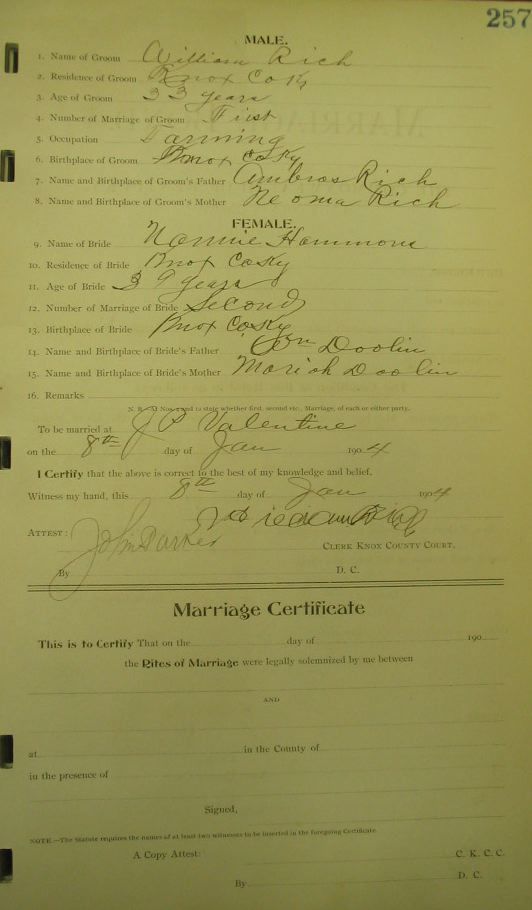 257
MALE.
1. Name of Groom William Rich
2. Residence of Groom Knox Co Ky
3. Age of Groom 33 years
4. Number of Marriage of Groom First
5. Occupation Farming
6. Birthplace of Groom Knox Co Ky
7. Name and Birthplace of Groom's Father Ambros Rich
8. Name and Birthplace of Groom's Mother Neoma Rich
FEMALE.
9. Name of Bride Nannie Hammons
10. Residence of Bride Knox Co Ky
11. Age of Bride 39 years
12. Number of Marriage of Bride Second
13. Birthplace of Bride Knox Co Ky
14. Name and Birthplace of Bride's Father Wm Doolin
15. Name and Birthplace of Bride's Mother Moriah Doolin
16. Remarks
N. B.—At Nos. 4 and to state whether first, second etc. Marriage, of each or either party.
To be married at J P Valentine
on the 8th day of Jan 1904
I Certify that the above is correct to the best of my knowledge and belief.
Witness my hand, this 8th day of Jan 1904
Rich
ATTEST: John Parker
CLERK KNOX COUNTY COURT.
By D. C.
Marriage Certificate
This is to Certify That on the day of 190
the Rites of Marriage were legally solemnized by me between
AND
at in the County of
in the presence of
Signed,
NOTE.—The Statute requires the names of at least two witnesses to be inserted in the foregoing Certificate.
A Copy Attest: C. K. C. C.
By D. C.